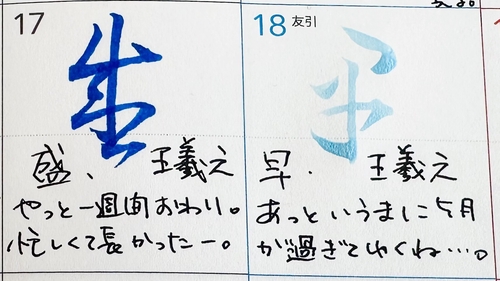 17
盛
盛、 王羲之
やっと一週間おわり。
忙しくて長かったー。
18 友引
早
早、 王羲之
あっというまに5月
が過ぎてゆくね…。